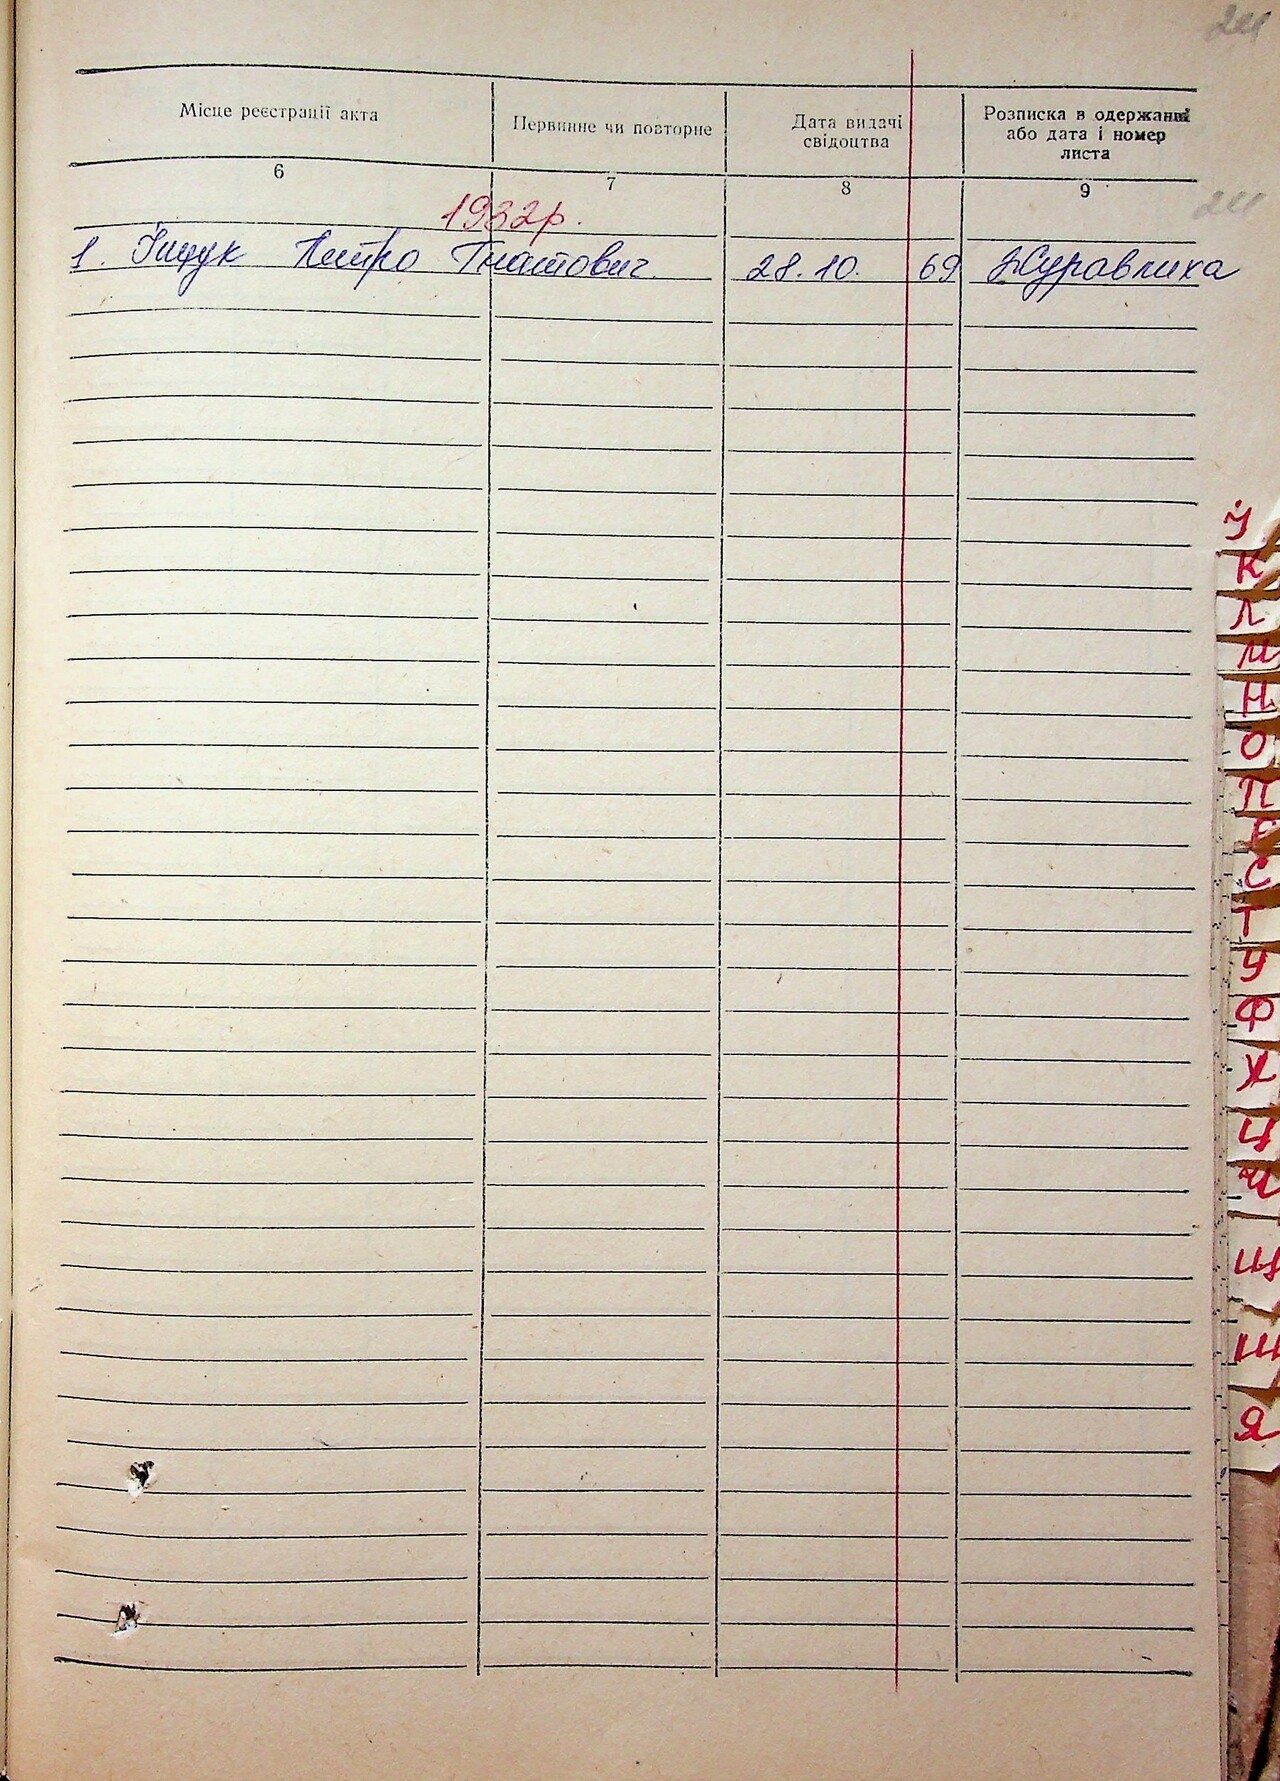 Місце реєстрації акта
Первинне чи повторне
Дата видачі
свідоцтва
Розписка в одержанні
або дата і номер
листа
6
7
8
9
1932р.
1. Іщук Петро Гнатович. 28.10. 69 Журавлиха
І
К
Л
М
Н
О
П
Р
С
Т
У
Ф
Х
Ц
Ч
Щ
Ш
Я